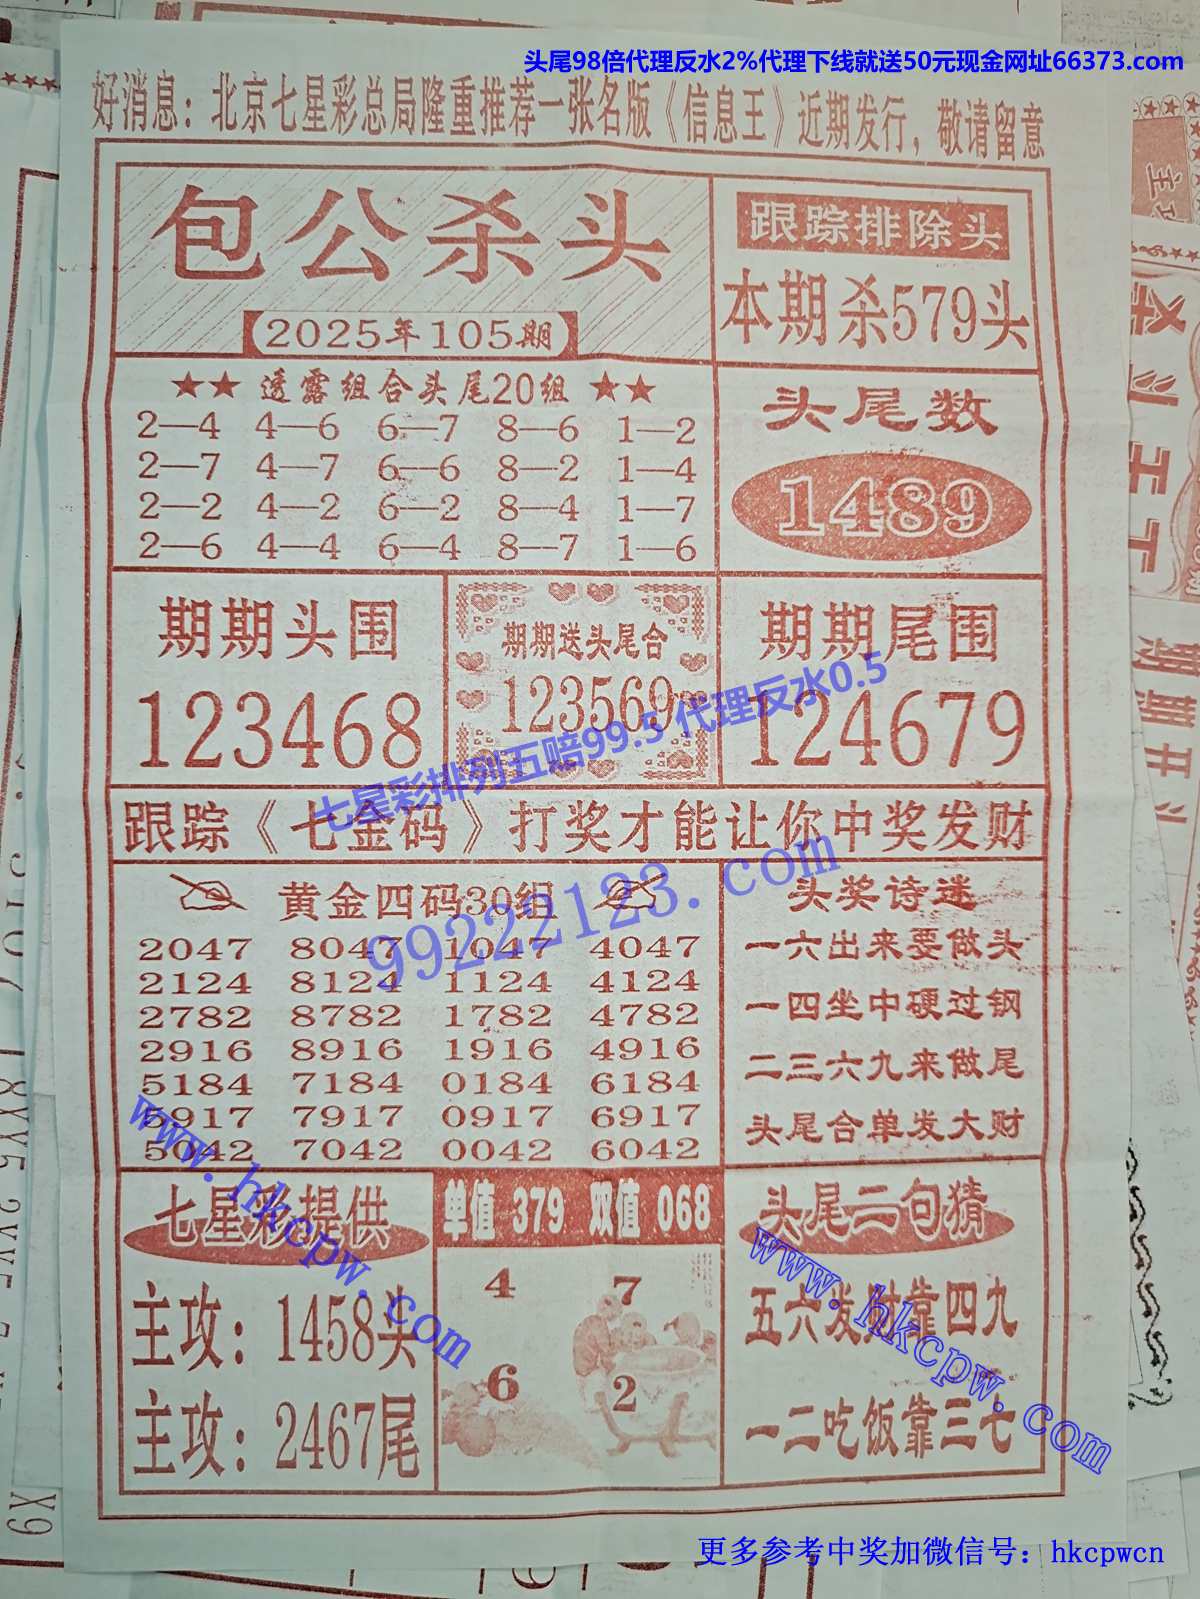 头尾98倍代理反水2%代理下线就送50元现金网址66373.com
好消息：北京七星彩总局隆重推荐一张名版《信息王》近期发行，敬请留意
包公杀头
【2025年105期】
跟踪排除头
本期杀579头
★★ 透露组合头尾20组 ★★
2—4 4—6 6—7 8—6 1—2
2—7 4—7 6—6 8—2 1—4
2—2 4—2 6—2 8—4 1—7
2—6 4—4 6—4 8—7 1—6
头尾数
1489
期期头围
123468
期期送头尾合
123569
期期尾围
124679
七星彩排列五赔99.5 代理反水0.5
跟踪《七金码》打奖才能让你中奖发财
99222123.com
黄金四码30组
2047 8047 1047 4047
2124 8124 1124 4124
2782 8782 1782 4782
2916 8916 1916 4916
5184 7184 0184 6184
5917 7917 0917 6917
5042 7042 0042 6042
头奖诗迷
一六出来要做头
一四坐中硬过钢
二三六九来做尾
头尾合单发大财
www.hkcpw.com
七星彩提供
主攻：1458头
主攻：2467尾
单值 379 双值 068
4 7
6 2
头尾二句猜
五六发财靠四九
一二吃饭靠三七
www.hkcpw.com
更多参考中奖加微信号：hkcpwcn